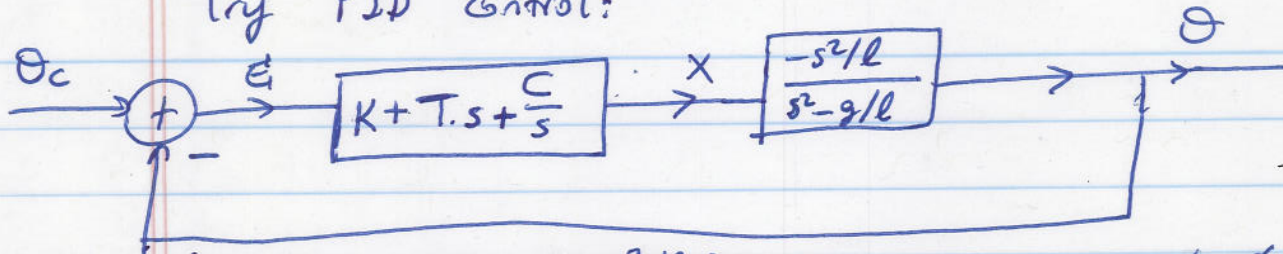 Try PID Control:
θc + − ε K + T.s + C/s X −s²/l / s² − g/l θ